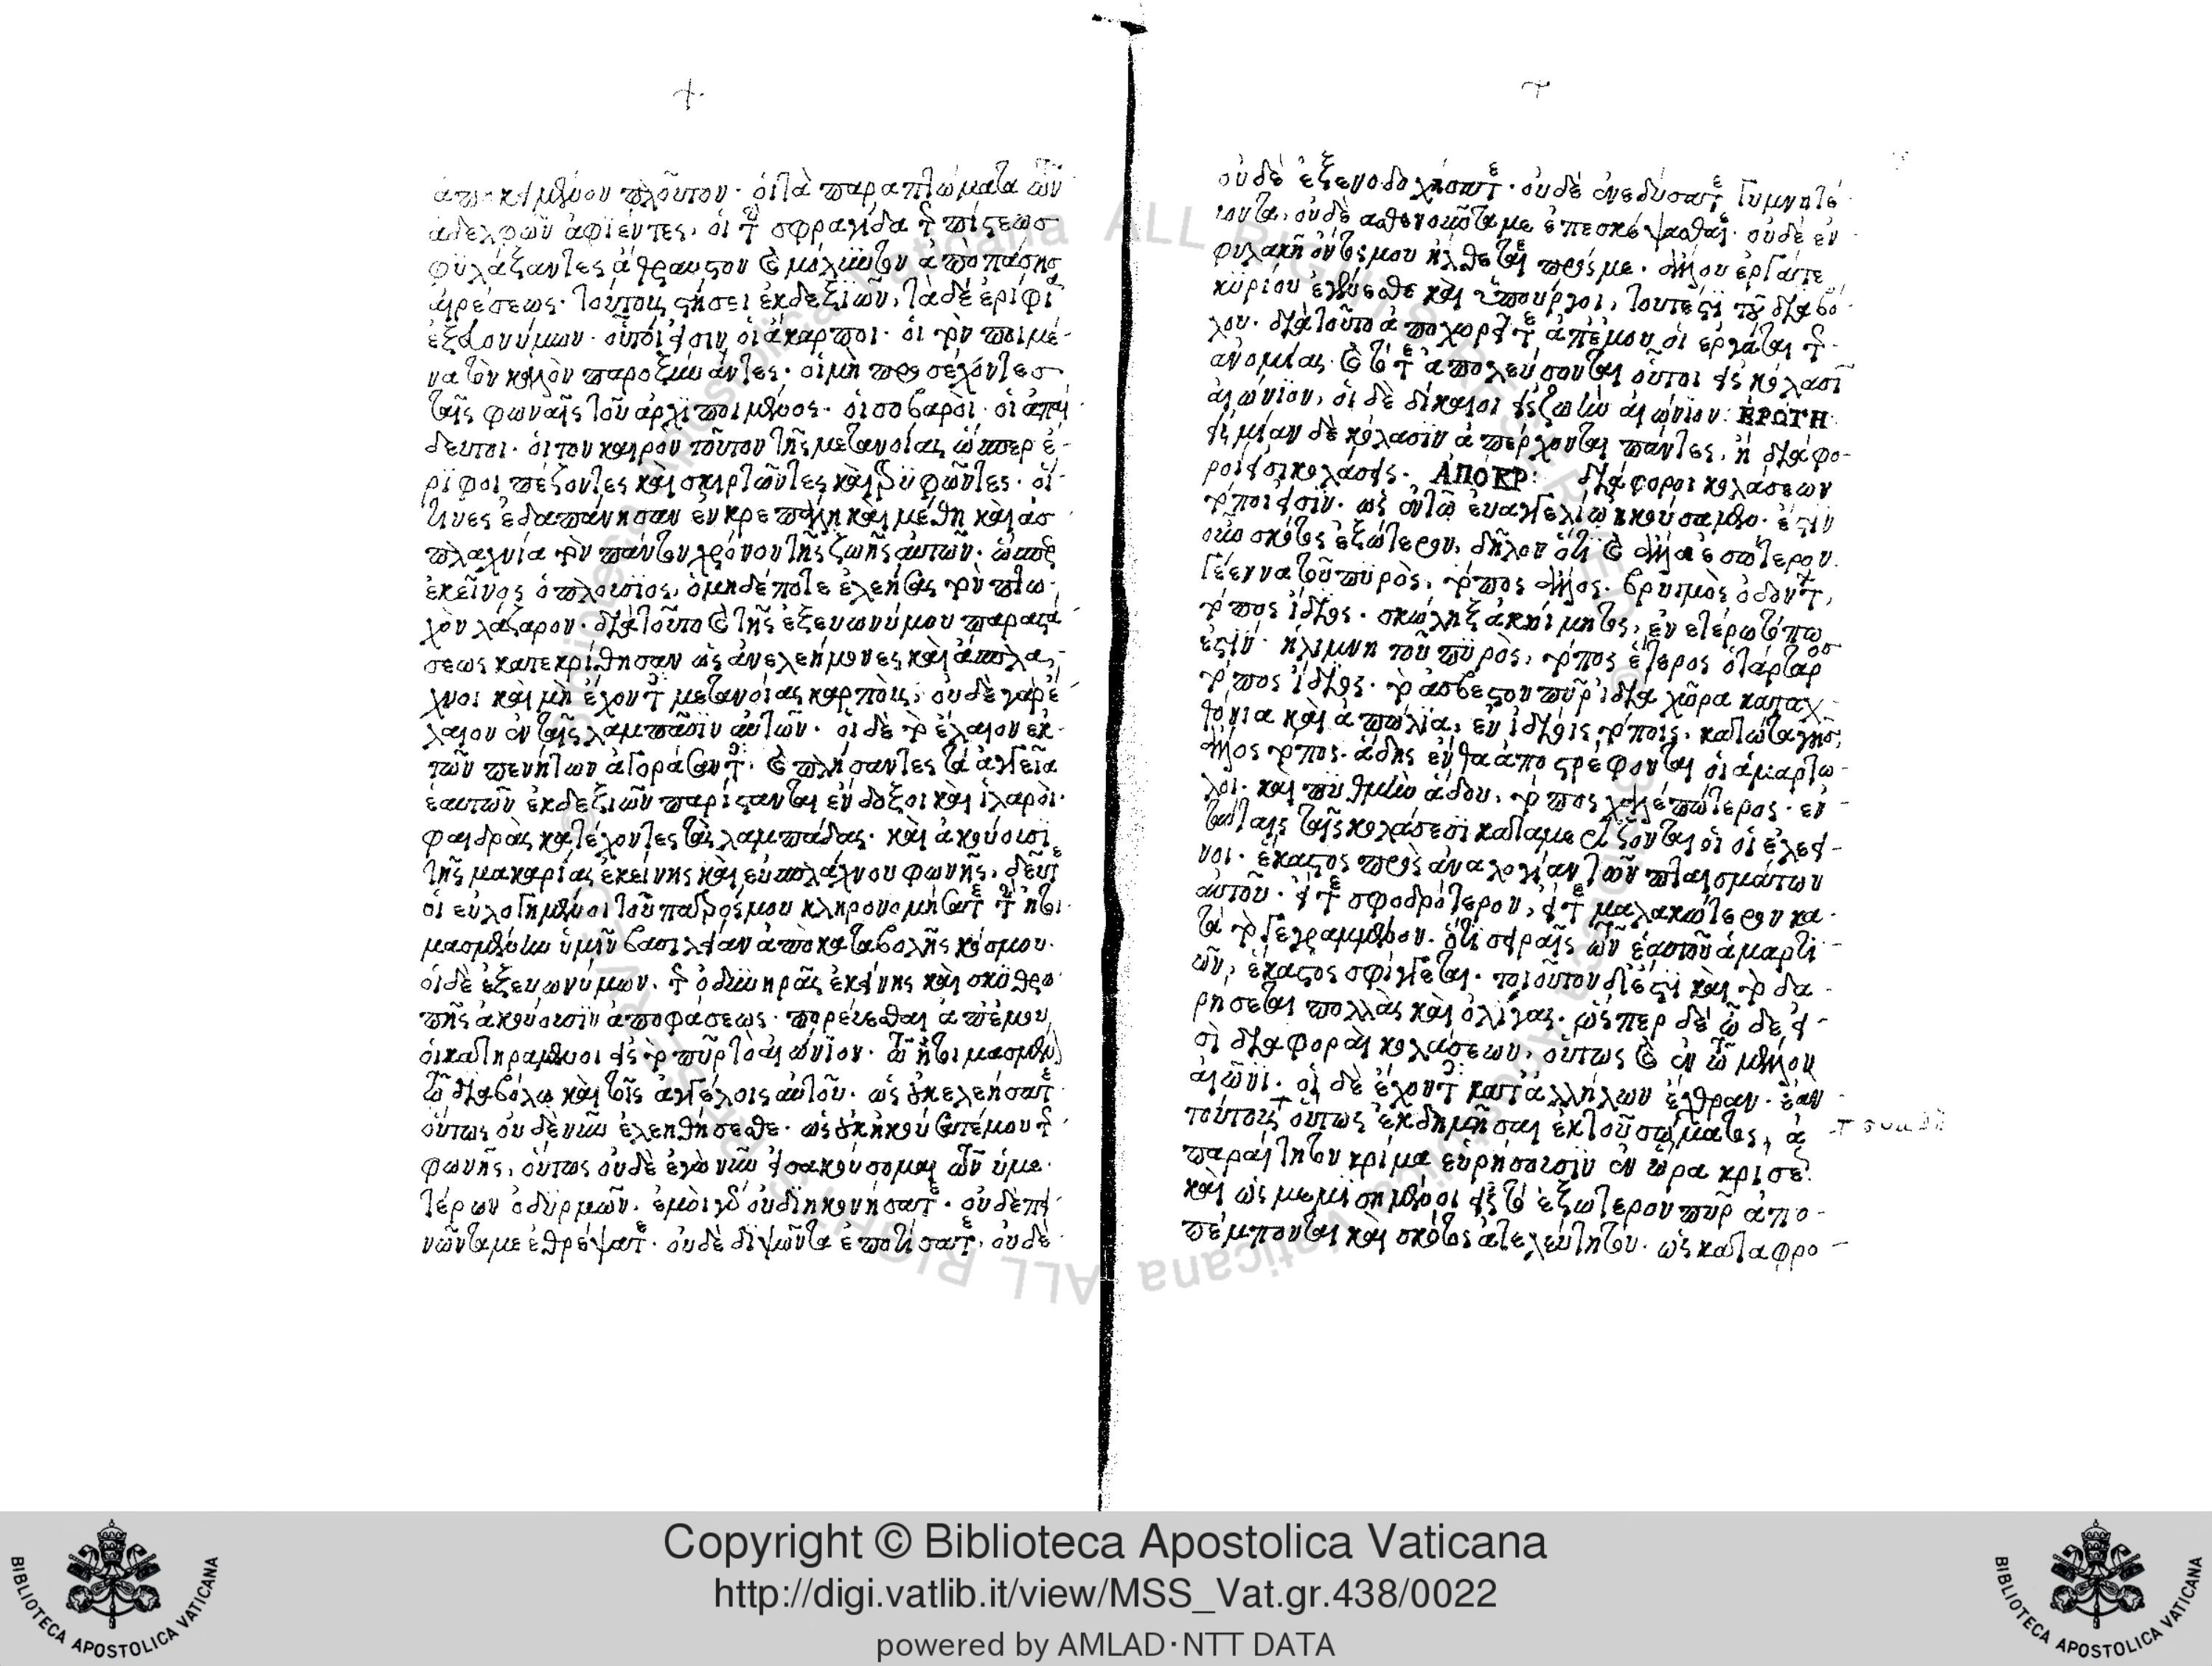 ἀποκείμενον πλοῦτον· οἱ τὰ παραπτώματα τῶν
ἀδελφῶν ἀφϊέντες, οἱ τὴν σφραγίδα τῆς πίστεως
φϋλάξαντες ἄθραυστον καὶ μόλϋντον ἀπὸ πάσης
αἱρέσεως· τούτους στήσει ἐκ δεξϊῶν, τὰ δὲ ἐρίφια
ἐξ εὐονύμων· οὗτοί εἰσιν οἱ ἄκαρποι· οἱ τὸν ποιμέ-
να τὸν καλὸν παροξύναντες· οἱ μὴ προσέχόντες
ταῖς φωναῖς τοῦ ἀρχϊποιμένος· οἱ σοβαρὸι· οἱ ἀπαί
δευτοι· οἱ τὸν καιρὸν τοῦτον τῆς μετανοίας ὥσπερ ἐ-
ρΐφοι πέζοντες καὶ σκιρτῶντες καὶ τρϋφῶντες· οἵ-
τινες ἐδαπάνησαν ἐν κρεπάλη καὶ μέθη καὶ ἀσ
πλαχνία τὸν πάντον χρόνον τῆς ζωῆς αὐτῶν· ὥσπερ
ἐκεῖνος ὁ πλούσϊος, ὁ μηδέποτε ἐλεήσας τὸν πτω-
χὸν λάζαρον· διὰ τοῦτο καὶ τῆς ἐξ εὐωνύμου παραστά
σεως κατεκρίθησαν ὡς ἀνελεήμονες καὶ ἄσπλα-
χνοι καὶ μὴ ἔχοντες μετανοίας καρποὺς, οὐδὲ γὰρ ἔ
λαιον ἐν ταῖς λαμπᾶσϊν αὐτῶν· οἱ δὲ τὸ ἔλαιον ἐκ
τῶν πενήτων ἀγοράσαντες· καὶ πλήσαντες τὰ ἀγγεῖα
ἑαυτῶν ἐκ δεξϊῶν παρίστανται ἔνδοξοι καὶ ἱλαρὸι·
φαιδρὰς κατέχοντες τὰς λαμπάδας· καὶ ἀκούουσϊ
τῆς μακαρίας ἐκείνης καὶ εὐσπλάχνου φωνῆς, δεῦτε
οἱ εὐλογημένοι τοῦ πατρός μου κληρονομήσατε τὴν ἡτοι
μασμένην ὑμῖν βασιλείαν ἀπὸ καταβολῆς κόσμου·
οἱ δὲ ἐξ εὐωνύμων, τῆς ὀδυνηρᾶς ἐκείνης καὶ σκϋθρο
πῆς ἀκούουσϊν ἀποφάσεως· πορεύεσθαι ἀπ' ἐμοῦ
οἱ κατηραμένοι εἰς τὸ πῦρ τὸ αἰώνϊον· τῶ ἡτοιμασμένον
τῶ διαβόλω καὶ τοῖς ἀγγέλοις αὐτοῦ· ὡς οὐκ ἐλεήσατε
οὕτως οὐδὲ νῦν ἐλεηθήσεσθε· ὡς οὐκ ἠκούσατέ μου τῆς
φωνῆς, οὕτως οὐδὲ ἐγὼ νῦν εἰσακούσομαι τῶν ὑμε-
τέρων ὀδϋρμῶν· ἐμὸι γὰρ οὐ δϊηκονήσατε· οὐδὲ πει
νῶντά με ἐθρέψατε· οὐδὲ δϊψῶντα ἐποτίσατε, οὐδὲ
οὐδὲ ἐξενοδοχήσατε· οὐδὲ ἐνεδύσατε γυμνητέ
βοντα, οὐδὲ ἀσθενοῦντά με ἐπεσκέψασθαι· οὐδὲ ἐν
φυλακῆ ὄντος μου ἤλθεται πρός με· ἄλλου ἐργάτε
κϋρίου ἐγένεσθε καὶ ὑπούργοι, τουτέστϊ τοῦ διαβό
λου· διὰ τοῦτο ἀποχορεῖτε ἀπ' ἐμοῦ οἱ ἐργάται τῆς
ἀνομίας· καὶ τότε ἀπολεύσονται οὗτοι εἰς κόλασϊν
αἰώνϊον, οἱ δὲ δίκαιοι εἰς ζωὴν αἰώνϊον: ΕΡΩΤΗ
εἰς μίαν δὲ κόλασϊν ἀπέρχονται πάντες, ἢ διάφο-
ροι εἰσὶ κολάσεις· ΑΠΟΚΡ: διάφοροι κολάσεων
τόποι εἰσϊν· ὡς ἐν τῶ ἐυαγγελίω ἠκούσαμεν· ἐστϊν
οὖν σκότος ἐξώτερον, δῆλον ὅτι καὶ ἄλλα ἐσώτερον.
Γέεννα τοῦ πϋρὸς, τόπος ἄλλος· βρϋγμὸς ὀδόντων,
τόπος ἴδιος· σκώληξ ἀκοίμητος, ἐν ἑτέρω τόπω
ἐστϊν· ἡ λίμνη τοῦ πϋρὸς, τόπος ἕτερος ὁ τάρταρος
τόπος ἴδιος· τὸ ἄσβεστον πῦρ ἰδία χῶρα καταχ-
θόνια καὶ ἀπώλϊα, ἐν ἰδίοις τόποις· κατώτα γῆς,
ἄλλος τόπος· ἅδης ἔνθα ἀποστρέφονται οἱ ἁμαρτω-
λοι· καὶ πϋθμὴν ἅδου, τόπος χαλεπώτερος· ἐν
ταύταις ταῖς κολάσεσϊ καταμερίζονται οἱ οἱ ἐλεει-
νοι· ἕκαστος πρὸς ἀναλογίαν τῶν πταισμάτων
αὐτοῦ· εἴτε σφοδρότερον, εἴτε μαλακώτερον κα-
τὰ τὸ γεγραμμένον· ὅτι σειραῖς τῶν ἑαυτοῦ ἁμαρτι-
ῶν, ἕκαστος σφίγγεται· τοιοῦτον δὲ ἐστϊ καὶ τὸ δα-
ρήσεται πολλὰς καὶ ὀλίγας· ὥσπερ δὲ ὧδε εἰ-
σὶ διαφοραὶ κολάσεων, οὕτως καὶ ἐν τῶ μέλλον
αἰῶνϊ· οἱ δὲ ἔχοντες κατ' ἀλλήλων ἔχθραν· ἐὰν
τούτους οὕτως ἐκδημῆσαι ἐκ τοῦ σώματος, ἀ
παραίτητον κρίμα εὑρήσουσϊν ἐν ὥρα κρίσεως·
καὶ ὡς μεμϊσημένοι εἰς τὸ ἐξώτερον πῦρ ἀπο-
πέμπονται καὶ σκότος ἀτελεύτητον· ὡς καταφρο-
Copyright © Biblioteca Apostolica Vaticana
http://digi.vatlib.it/view/MSS_Vat.gr.438/0022
powered by AMLAD·NTT DATA
BIBLIOTECA APOSTOLICA VATICANA
BIBLIOTECA APOSTOLICA VATICANA